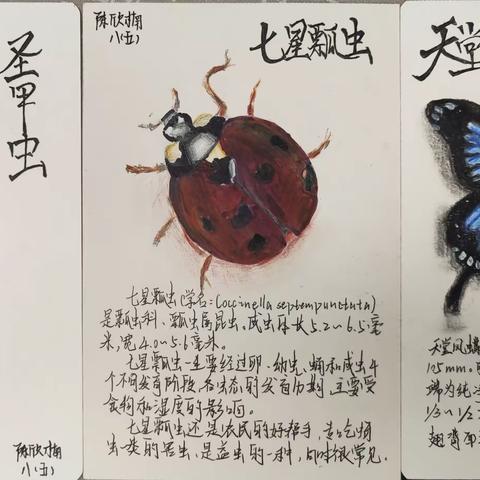 圣甲虫
陈欣楠
八(五)
陈欣楠
八(五)
七星瓢虫
七星瓢虫(学名:Coccinella septempunctuta)
是瓢虫科、瓢虫属昆虫。成虫体长5.2~6.5毫
米,宽4.0~5.6毫米。
七星瓢虫一生要经过卵、幼虫、蛹和成虫4
个不同发育阶段,各虫态的发育历期,主要受
食物和湿度的影响。
七星瓢虫还是农民的好帮手,专吃蚜
虫一类的害虫,是益虫的一种,
天堂
天堂凤蝶
105mm。
端为纯
1/3~1/2
翅背面